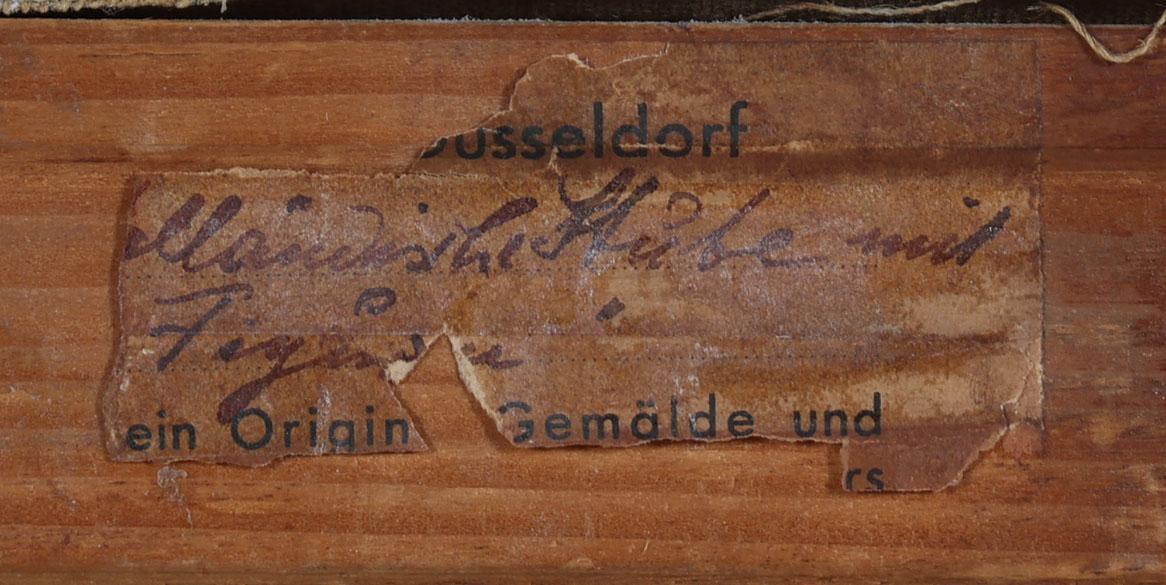 Düsseldorf
olländische Stube mit
Figuren
ein Origin Gemälde und
rs